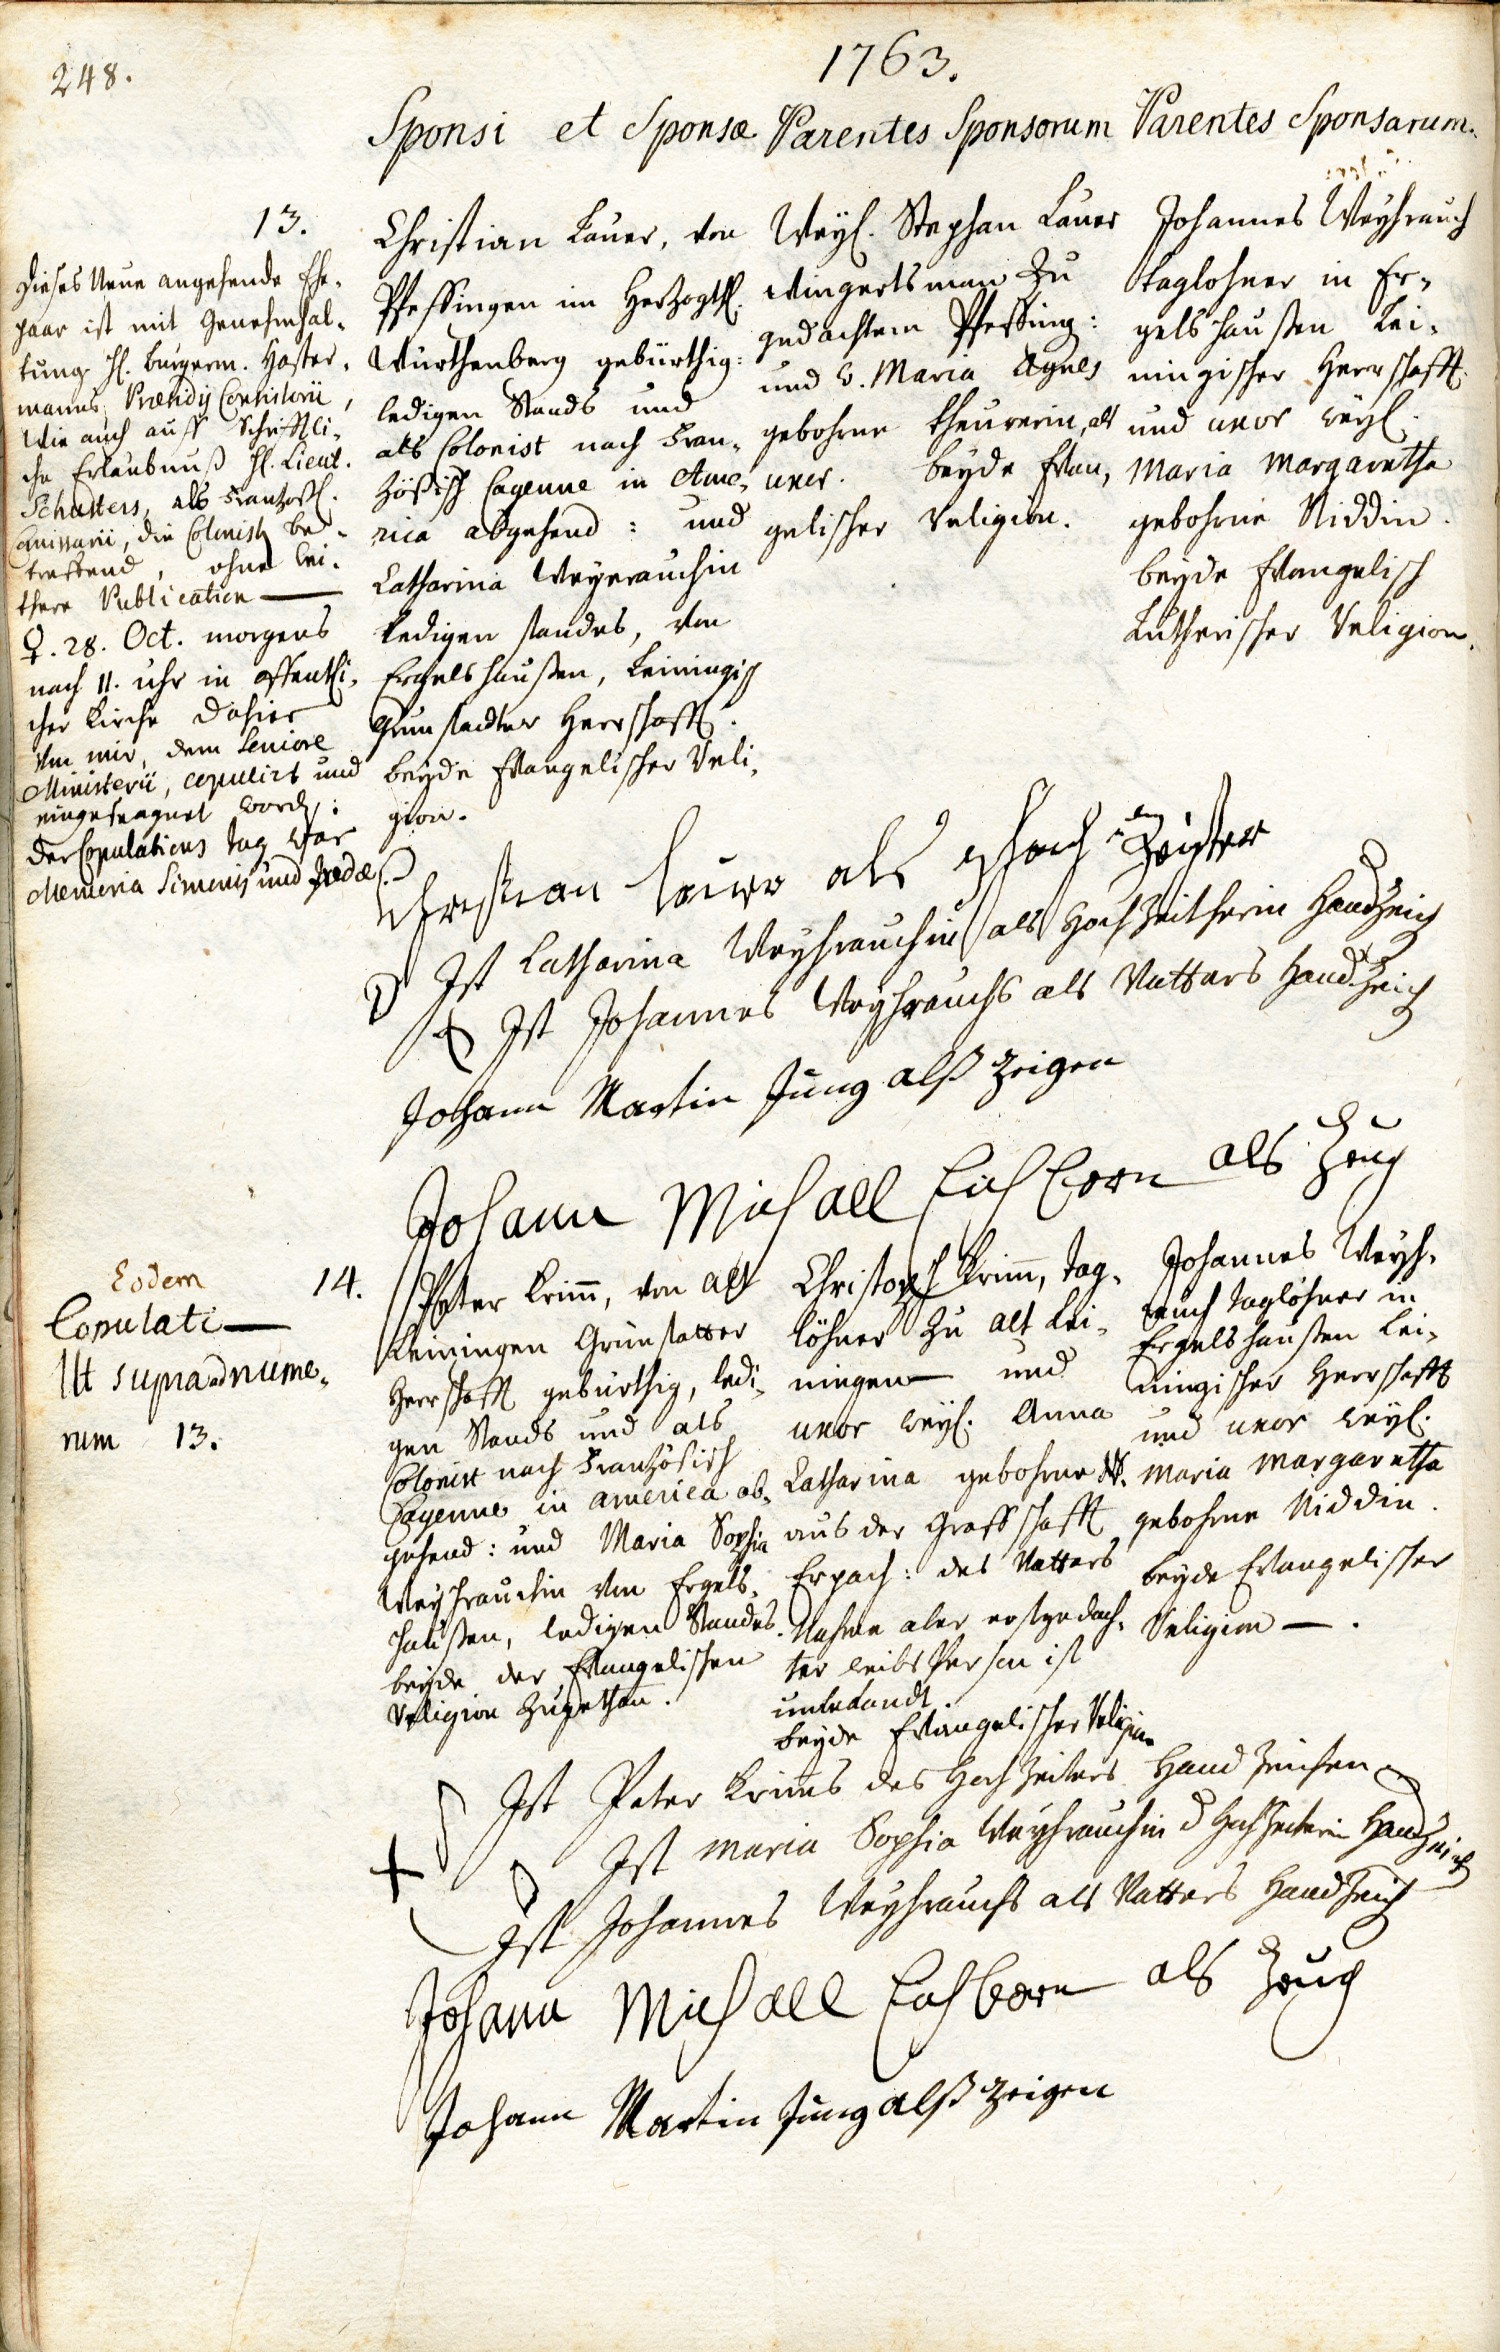 248.
1763.
Sponsi et Sponsæ Parentes Sponsorum Parentes Sponsarum.
13.
Dieses Neue angehende Ehe-
paar ist mit Genehmhal-
tung H. burgerm. Hoster-
manns, Præsidij Consistorii,
wie auch auff Schrifftli-
che Erlaubnuß H. Lieut.
Schusters, als Frantzöß.
die Colonist be-
treffend, ohne
Publication —
♀. 28. Oct. morgens
nach 11. uhr in offentli-
cher Kirche dahier
von mir, dem Seniore
Ministerii, copulirt und
eingesegnet word:
der Copulations tag war
Memoria Simonis und Judæ
Christian Lauer, von
Pfeffingen im Hertzogth.
Würthenberg gebürthig:
ledigen Stands und
als Colonist nach Fran-
zößisch Cayenne in Ame-
rica abgehend: und
Catharina Weyerauchin
ledigen standes, von
Ergelshaußen, Leiningisch
Grunstadter Herrschafft.
beyde Evangelischer Reli-
gion.
Weyl. Stephan Lauer
Wingertsman zu
gedachtem Pfeffing:
und v. Maria Agnes
gebohrne Theurerin, als
uxor. beyde Evan-
gelischer Religion.
Johannes Weyhrauch
taglohner in Er-
gelshaußen Lei-
ningischer Herrschafft.
und uxor weyl.
Maria Margaretha
gebohrne Niddin.
beyde Evangelisch
Lutherischer Religion.
Christian Lauer als
Ist Catharina Weyhrauchin als Hochzeitherin Handzeich
Ist Johannes Weyhrauchs als Vatters Handzeich
Johann Martin Jung alß zeigen
Johann Michaell Eichborn als Zeug
Eodem
Copulati —
Ut supra ad nume-
rum 13.
14.
Peter Krim̄, von alt
Leiningen Grünstatter
Herrschafft gebürthig, ledi-
gen Stands und als
Colonist nach Französisch
Cayenne in America ab-
gehend: und Maria Sophia
Weyhrauchin von Ergels-
haußen, ledigen Standes.
beyde der Evangelischen
Religion zugethan.
Christoph Krim̄, tag-
löhner zu alt Lei-
ningen und
uxor weyl. Anna
Catharina gebohrne N.
aus der Graffschafft
Erpach: des Vatters
Nahme aber erstgedach-
ter weibs Person ist
unbekandt.
beyde Evangelischer Religion
Johannes Weyh-
rauch taglöhner in
Ergelshaußen Lei-
ningischer Herrschafft
und uxor weyl.
Maria Margaretha
gebohrne Niddin.
beyde Evangelischer
Religion —.
Ist Peter Krim̄s des Hochzeiters Handzeichen
Ist Maria Sophia Weyhrauchin d Hochzeiterin Handzeich
Ist Johannes Weyhrauchs als Vatters Handzeich
Johann Michaell Eichborn als Zeug
Johann Martin Jung alß zeigen